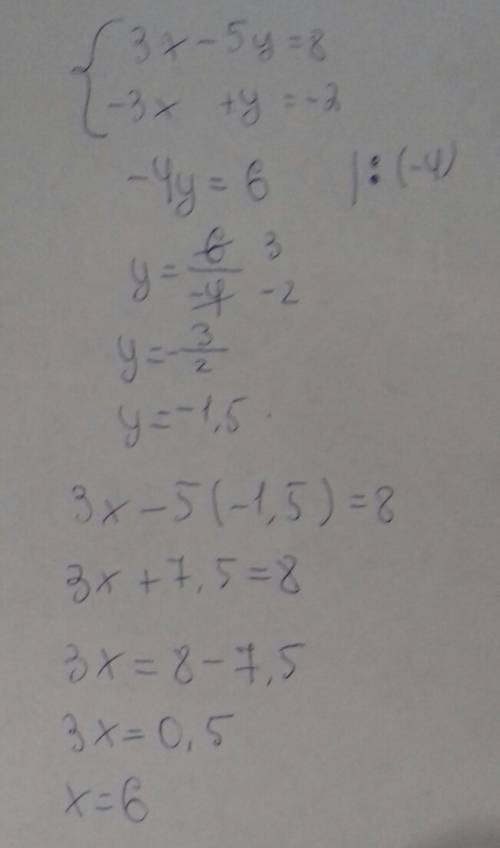 { 3x - 5y = 8
-3x + y = -2
-4y = 6 |: (-4)
y = 6/-4 3/-2
y = -3/2
y = -1,5.
3x - 5(-1,5) = 8
3x + 7,5 = 8
3x = 8 - 7,5
3x = 0,5
x = 6